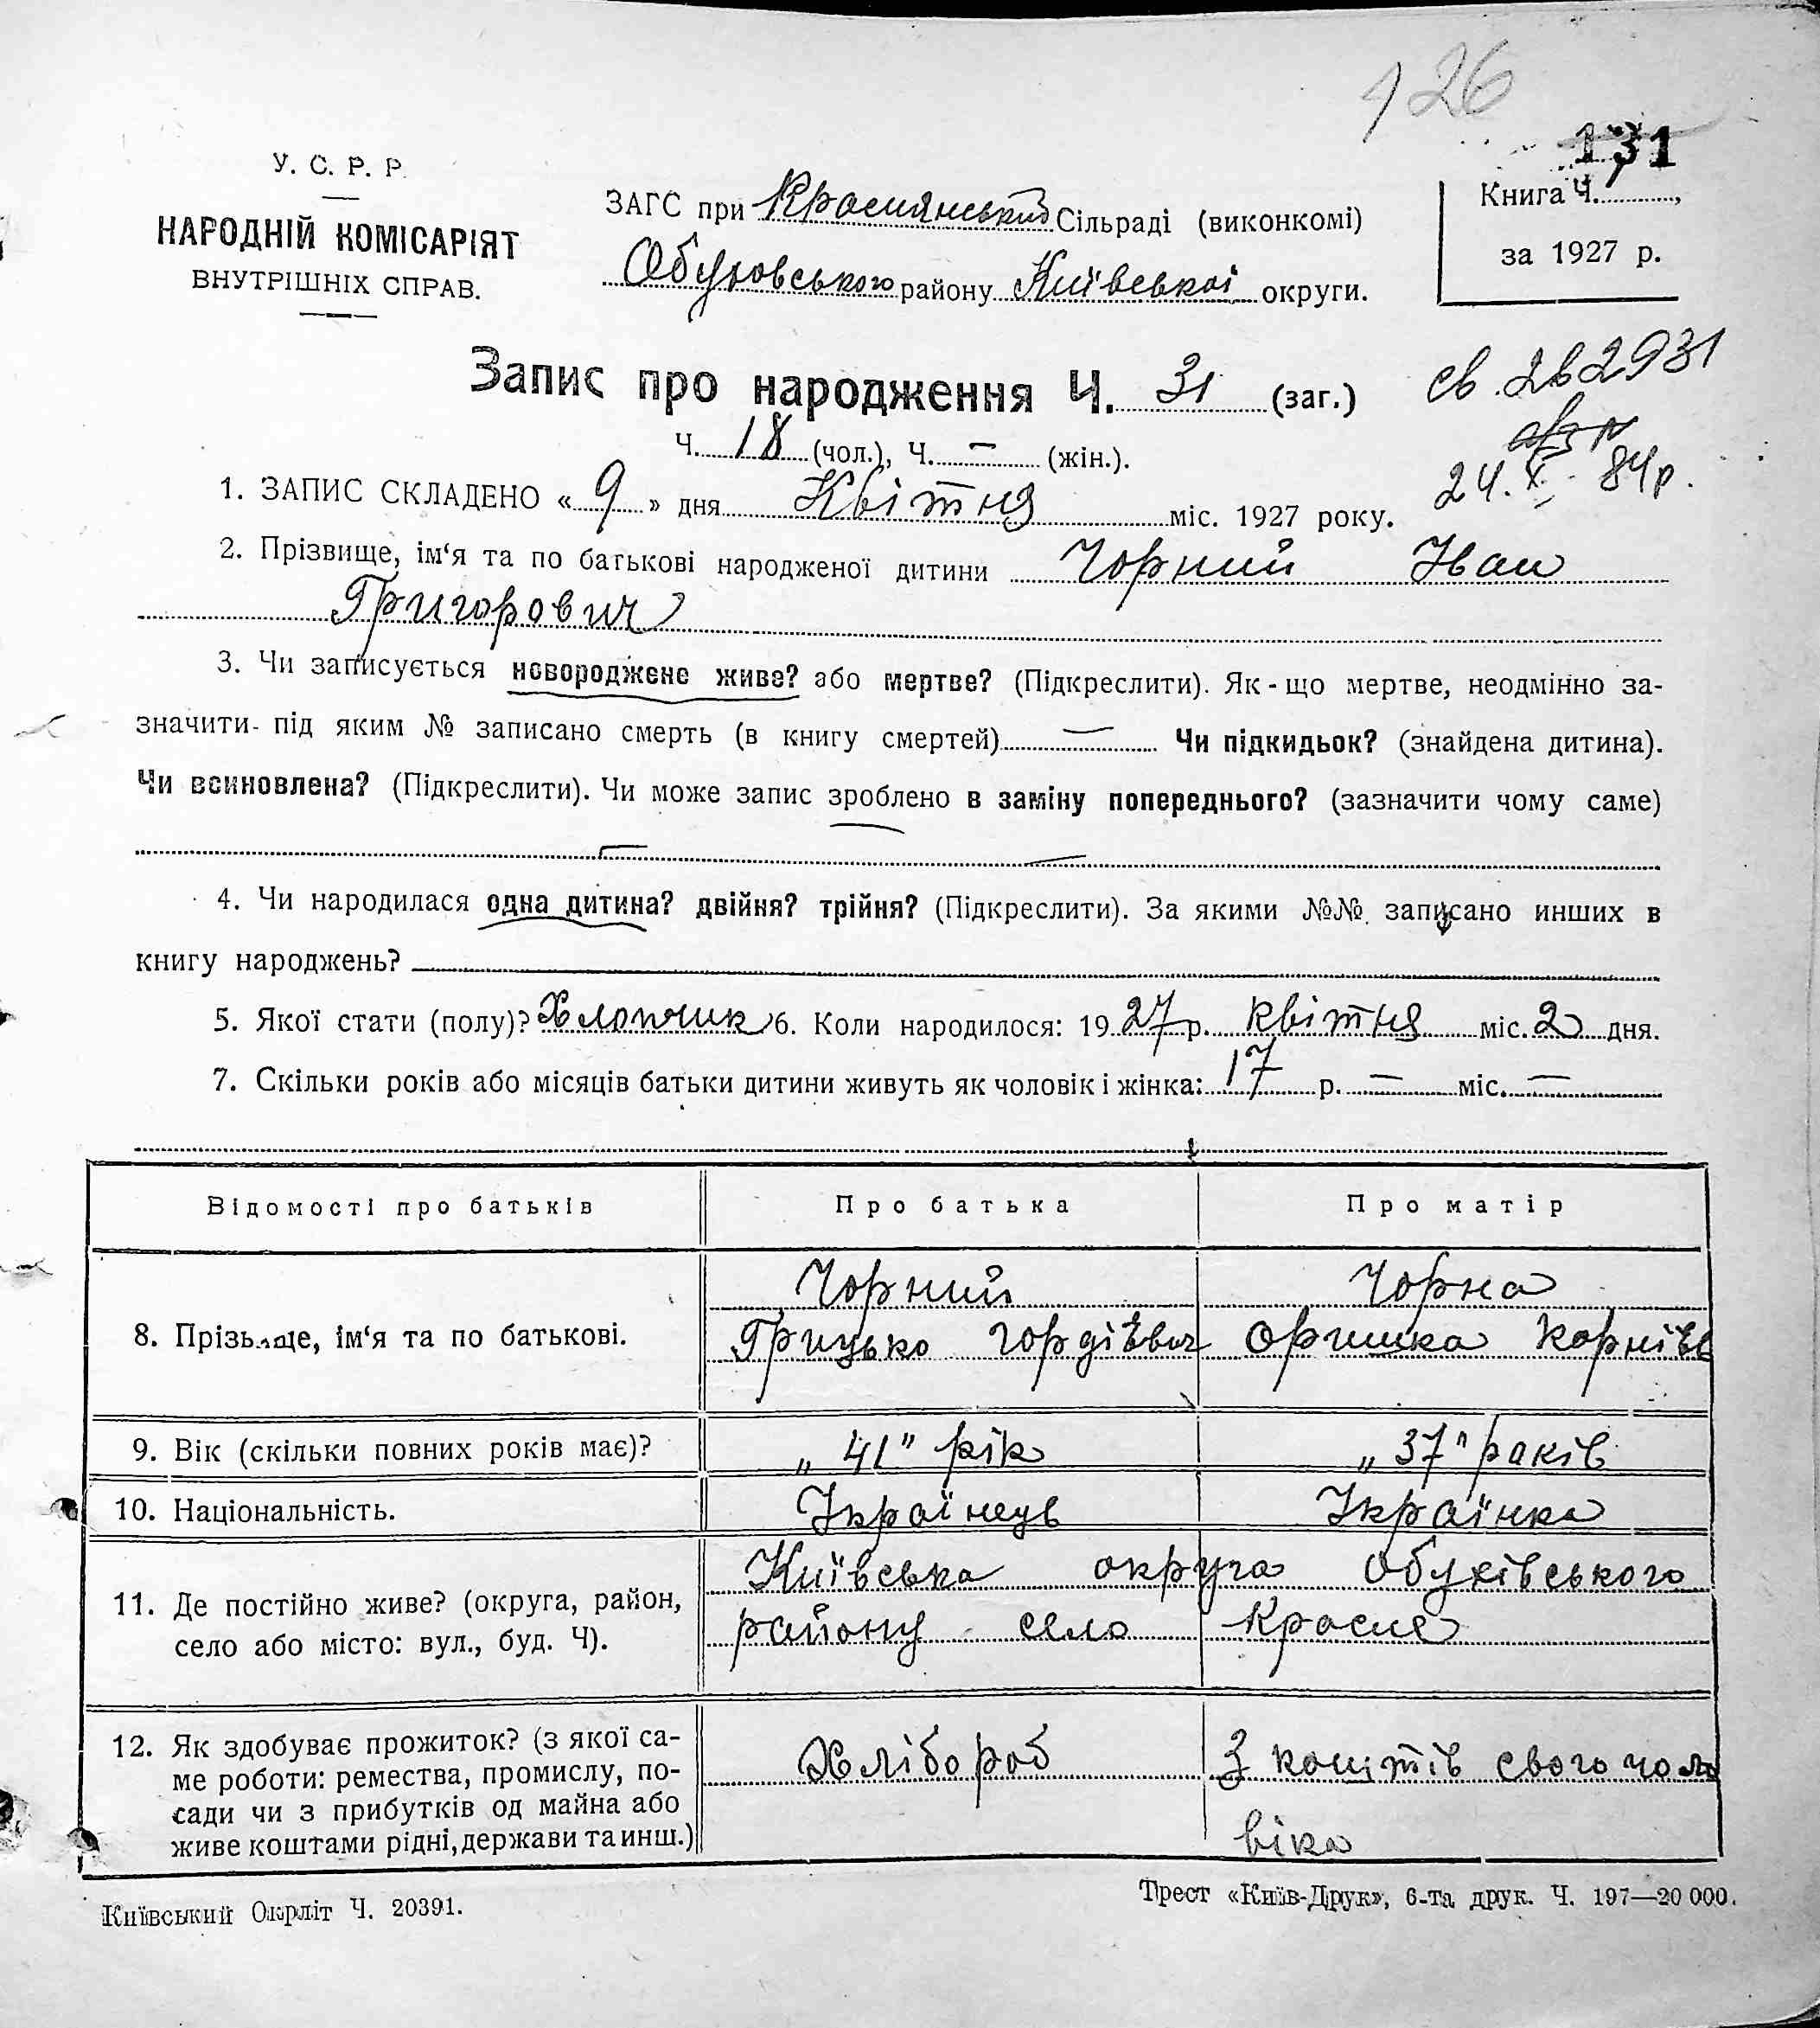 126
131
У. С. Р. Р.
НАРОДНІЙ КОМІСАРІЯТ
ВНУТРІШНІХ СПРАВ.
ЗАГС при Краснянській Сільраді (виконкомі)
Обуховського району Київської округи.
Книга Ч. 1,
за 1927 р.
Запис про народження Ч. 31 (заг.)
св. 2в2931
24. X. 84р.
Ч. 18 (чол.), Ч. — (жін.).
1. ЗАПИС СКЛАДЕНО « 9 » дня Квітня міс. 1927 року.
2. Прізвище, ім‘я та по батькові народженої дитини Чорний Іван
Григорович
3. Чи записується новороджене живе? або мертве? (Підкреслити). Як-що мертве, неодмінно за-
значити- під яким № записано смерть (в книгу смертей) — Чи підкидьок? (знайдена дитина).
Чи всиновлена? (Підкреслити). Чи може запис зроблено в заміну попереднього? (зазначити чому саме)
— —
4. Чи народилася одна дитина? двійня? трійня? (Підкреслити). За якими №№ записано инших в
книгу народжень?
5. Якої стати (полу)? Хлопчик 6. Коли народилося: 1927 р. квітня міс. 2 дня.
7. Скільки років або місяців батьки дитини живуть як чоловік і жінка: 17 р. — міс. —
Відомості про батьків Про батька Про матір
8. Прізьвище, ім‘я та по батькові. Чорний Чорна
Грицько Гордіевич Оришка Корніев
9. Вік (скільки повних років має)? „ 41 " рік „ 37 " раків
10. Національність. Українець Українка
11. Де постійно живе? (округа, район,
село або місто: вул., буд. Ч). Київська округа Обухівського
району село Красне
12. Як здобуває прожиток? (з якої са-
ме роботи: ремества, промислу, по-
сади чи з прибутків од майна або
живе коштами рідні, держави та инш.) Хлібороб З коштів свого чоло
віка
Київський Окрліт Ч. 20391.
Трест «Київ-Друк», 6-та друк. Ч. 197—20 000.